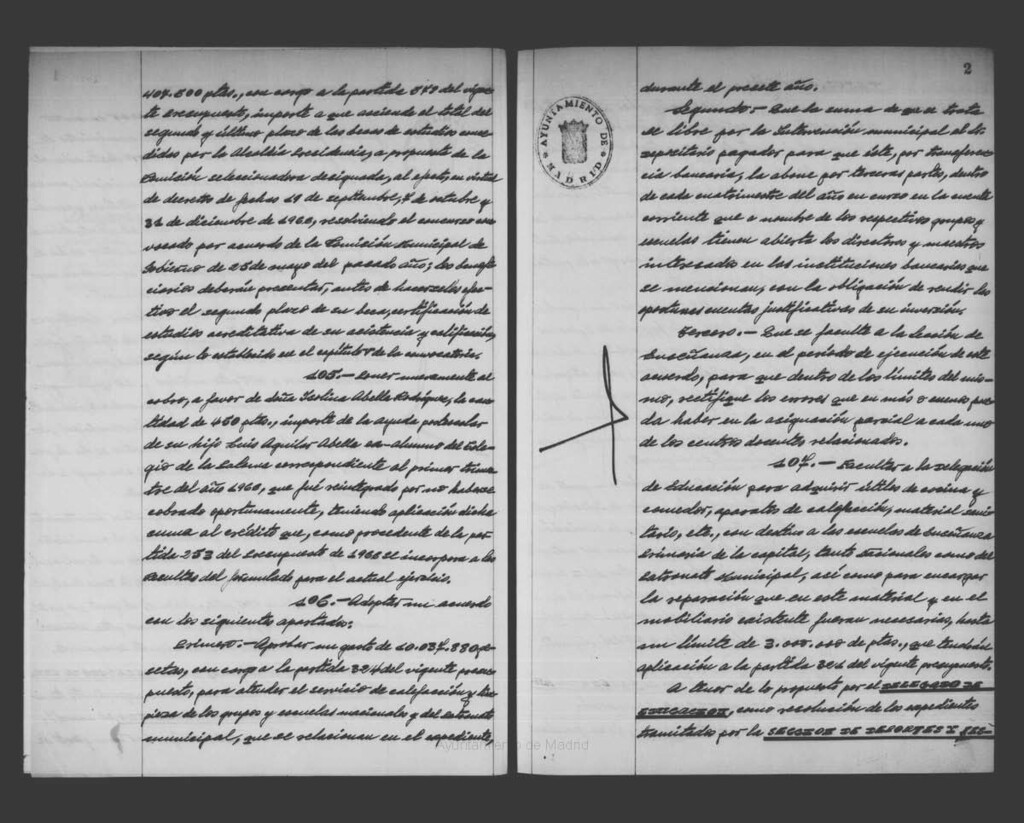 407.500 ptas., con cargo a la partida 579 del vigen-
te Presupuesto, importe a que asciende el total del
segundo y último plazo de las becas de estudios conce-
didas por la Alcaldía Presidencia, a propuesta de la
Comisión seleccionadora designada, al efecto, en virtud
de decretos de fechas 19 de septiembre, de octubre y
31 de diciembre de 1960, resolviendo el concurso con-
vocado por acuerdo de la Comisión Municipal de
Gobierno de 25 de mayo del pasado año; los benefi-
ciarios deberán presentar, antes de hacerseles efec-
tivo el segundo plazo de su beca, certificación de
estudios acreditativa de su asistencia y calificación,
según lo establecido en el capítulo de la convocatoria.
105.- Poner nuevamente al
cobro, a favor de doña Abella Rodríguez, la can-
tidad de 450 ptas., importe de la ayuda postescolar
de su hijo Luis Aguilar Abella ex-alumno del Cole-
gio de la Paloma correspondiente al primer trimes-
tre del año 1960, que fué reintegrado por no haberse
cobrado oportunamente, teniendo aplicación dicha
suma al crédito que, como procedente de la par-
tida 253 del Presupuesto de 1960 se incorpora a las
Resultas del formulado para el actual ejercicio.
106.- Adoptar un acuerdo
con los siguientes apartados:
Primero.- Aprobar un gasto de 10.037.880 pe-
setas, con cargo a la partida 324 del vigente presu-
puesto, para atender el servicio de calefacción y lim-
pieza de los grupos y escuelas nacionales y del Patronato
municipal, que se relacionan en el expediente,
2
durante el presente año.
Segundo.- Que la suma de que se trata
se libre por la Intervención municipal al de-
positario pagador para que éste, por transferen-
cia bancaria, la abone por terceras partes, dentro
de cada cuatrimestre del año en curso en la cuenta
corriente que a nombre de los respectivos grupos y
escuelas tienen abierta los directores y maestros
interesados en las instituciones bancarias que
se mencionan, con la obligación de rendir las
oportunas cuentas justificativas de su inversión.
Tercero.- Que se faculte a la Sección de
Enseñanza, en el período de ejecución de este
acuerdo, para que dentro de los límites del mis-
mo, rectifique los errores que en más o menos pue-
da haber en la asignación parcial a cada uno
de los centros docentes relacionados.
107.- Facultar a la Delegación
de Educación para adquirir útiles de cocina y
comedor, aparatos de calefacción, material sani-
tario, etc., con destino a las escuelas de Enseñanza
Primaria de la capital, tanto nacionales como del
Patronato Municipal, así como para encargar
la reparación que en este material y en el
mobiliario existente fueran necesarias, hasta
un límite de 3.000.000 de ptas., que tendrán
aplicación a la partida 324 del vigente presupuesto.
A tenor de lo propuesto por el DELEGADO DE
EDUCACION, como resolución de los expedientes
tramitados por la SECCION DE DEPORTES Y FES-
AYUNTAMIENTO DE MADRID
Ayuntamiento de Madrid